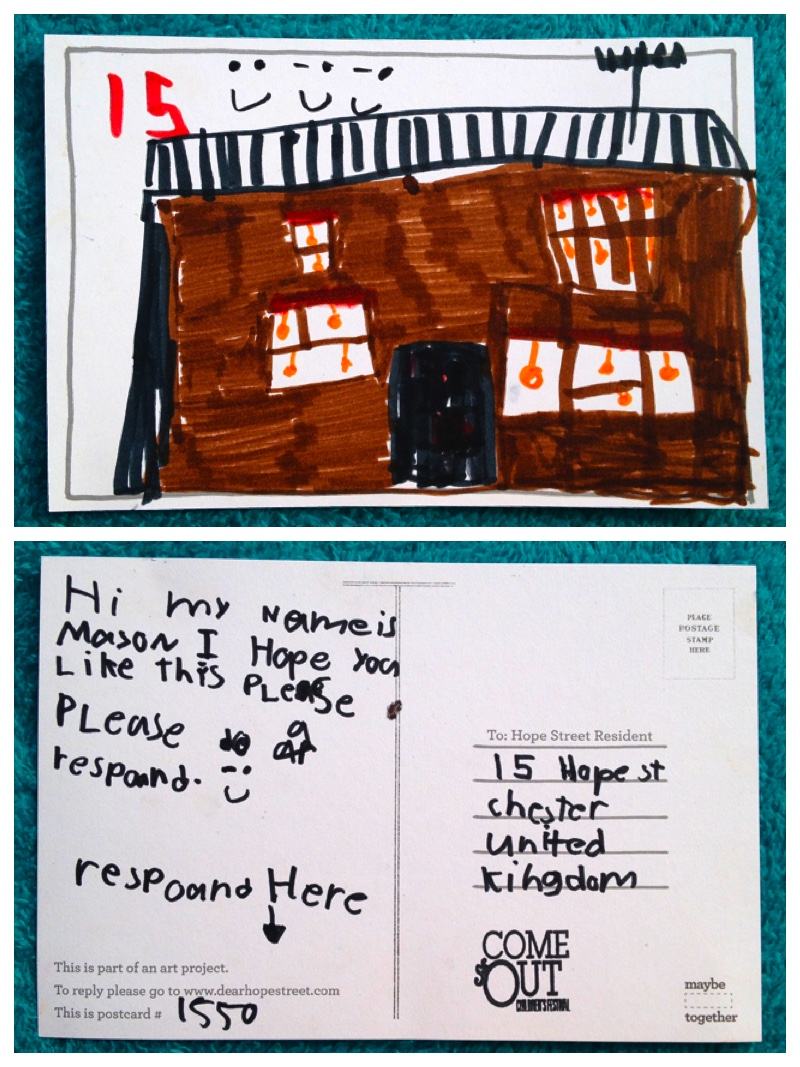 15
Hi my Name is
Mason I Hope you
Like this PLeaSe
PLease do
respond.
respoand Here
This is part of an art project.
To reply please go to www.dearhopestreet.com
This is postcard # 1550
PLACE
POSTAGE
STAMP
HERE
To: Hope Street Resident
15 Hope st
chester
united
kingdom
COME
OUT
CHILDREN'S FESTIVAL
maybe
together